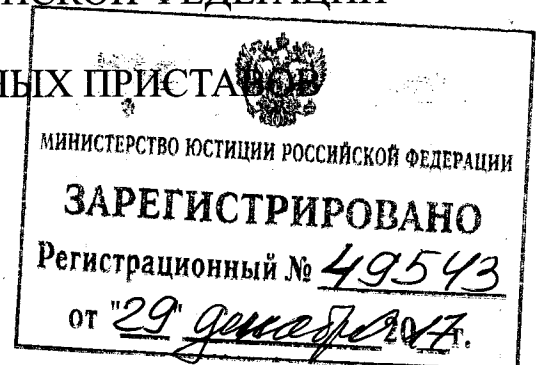 ЙСКОЙ ФЕДЕРАЦИИ
НЫХ ПРИСТАВОВ
МИНИСТЕРСТВО ЮСТИЦИИ РОССИЙСКОЙ ФЕДЕРАЦИИ
ЗАРЕГИСТРИРОВАНО
Регистрационный № 49543
от "29" декабря 2017г.